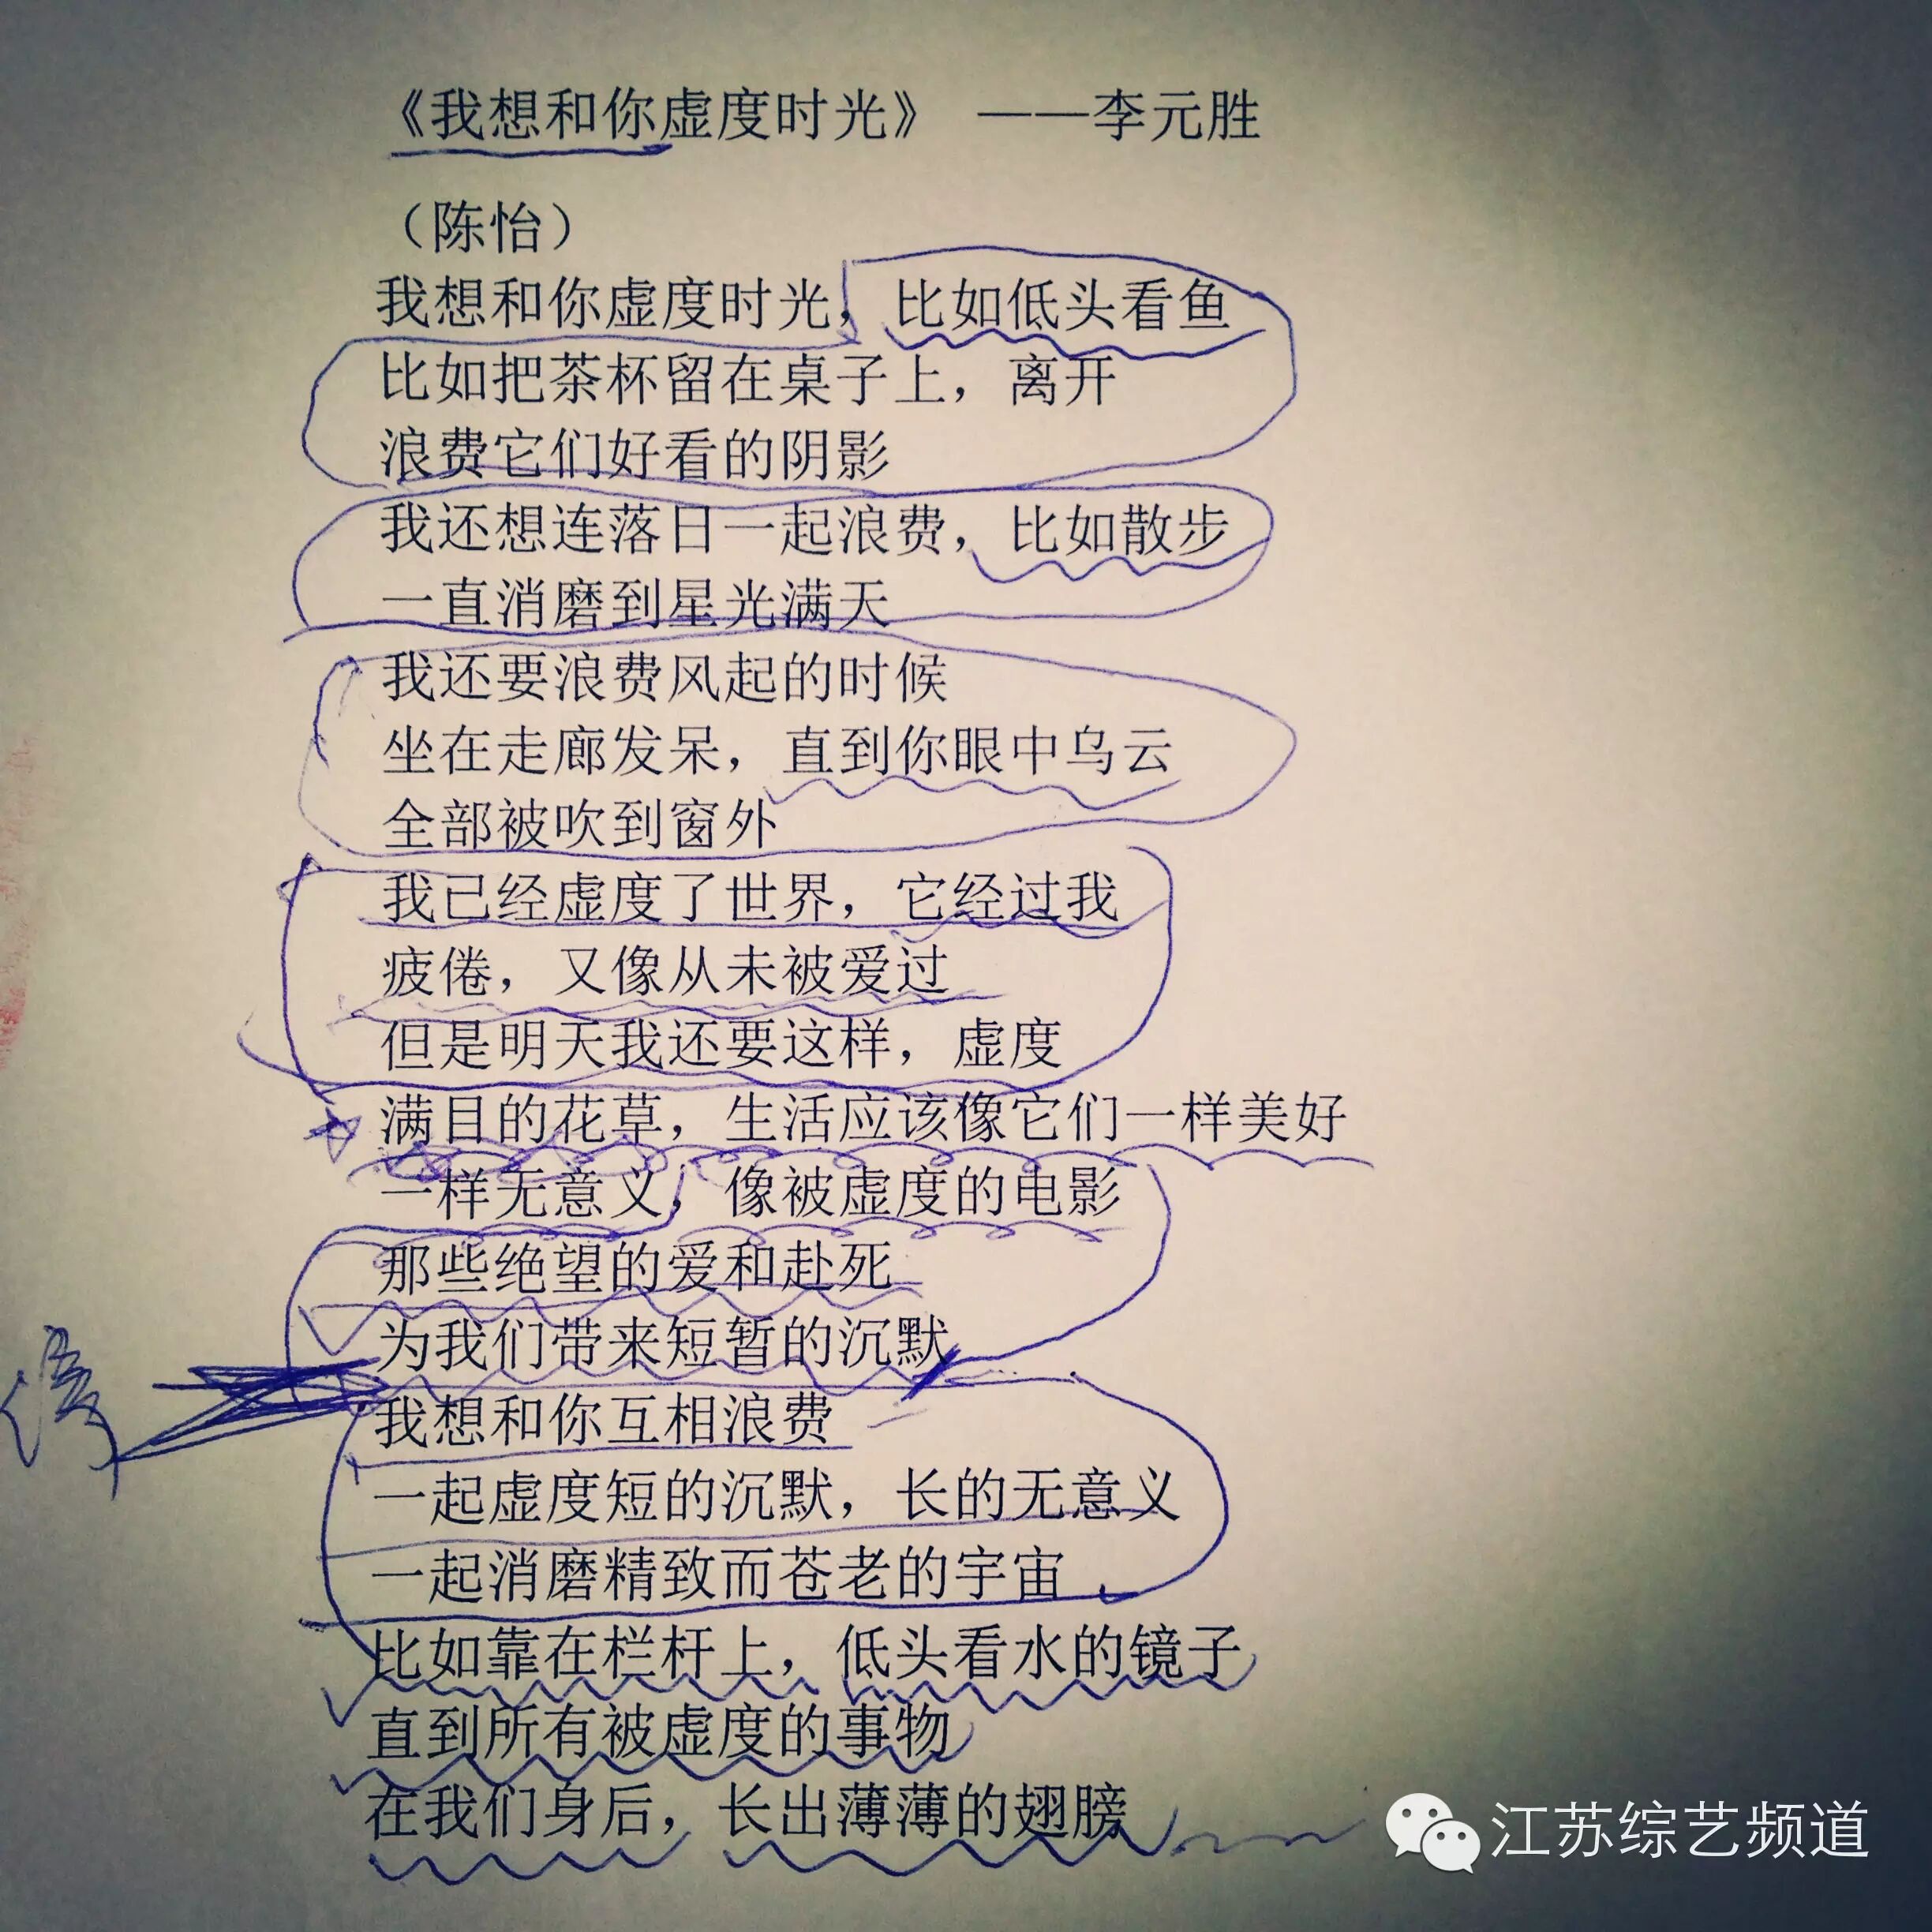 《我想和你虚度时光》 ——李元胜
（陈怡）
我想和你虚度时光，比如低头看鱼
比如把茶杯留在桌子上，离开
浪费它们好看的阴影
我还想连落日一起浪费，比如散步
一直消磨到星光满天
我还要浪费风起的时候
坐在走廊发呆，直到你眼中乌云
全部被吹到窗外
我已经虚度了世界，它经过我
疲倦，又像从未被爱过
但是明天我还要这样，虚度
满目的花草，生活应该像它们一样美好
一样无意义，像被虚度的电影
那些绝望的爱和赴死
为我们带来短暂的沉默
停
我想和你互相浪费
一起虚度短的沉默，长的无意义
一起消磨精致而苍老的宇宙
比如靠在栏杆上，低头看水的镜子
直到所有被虚度的事物
在我们身后，长出薄薄的翅膀
江苏综艺频道